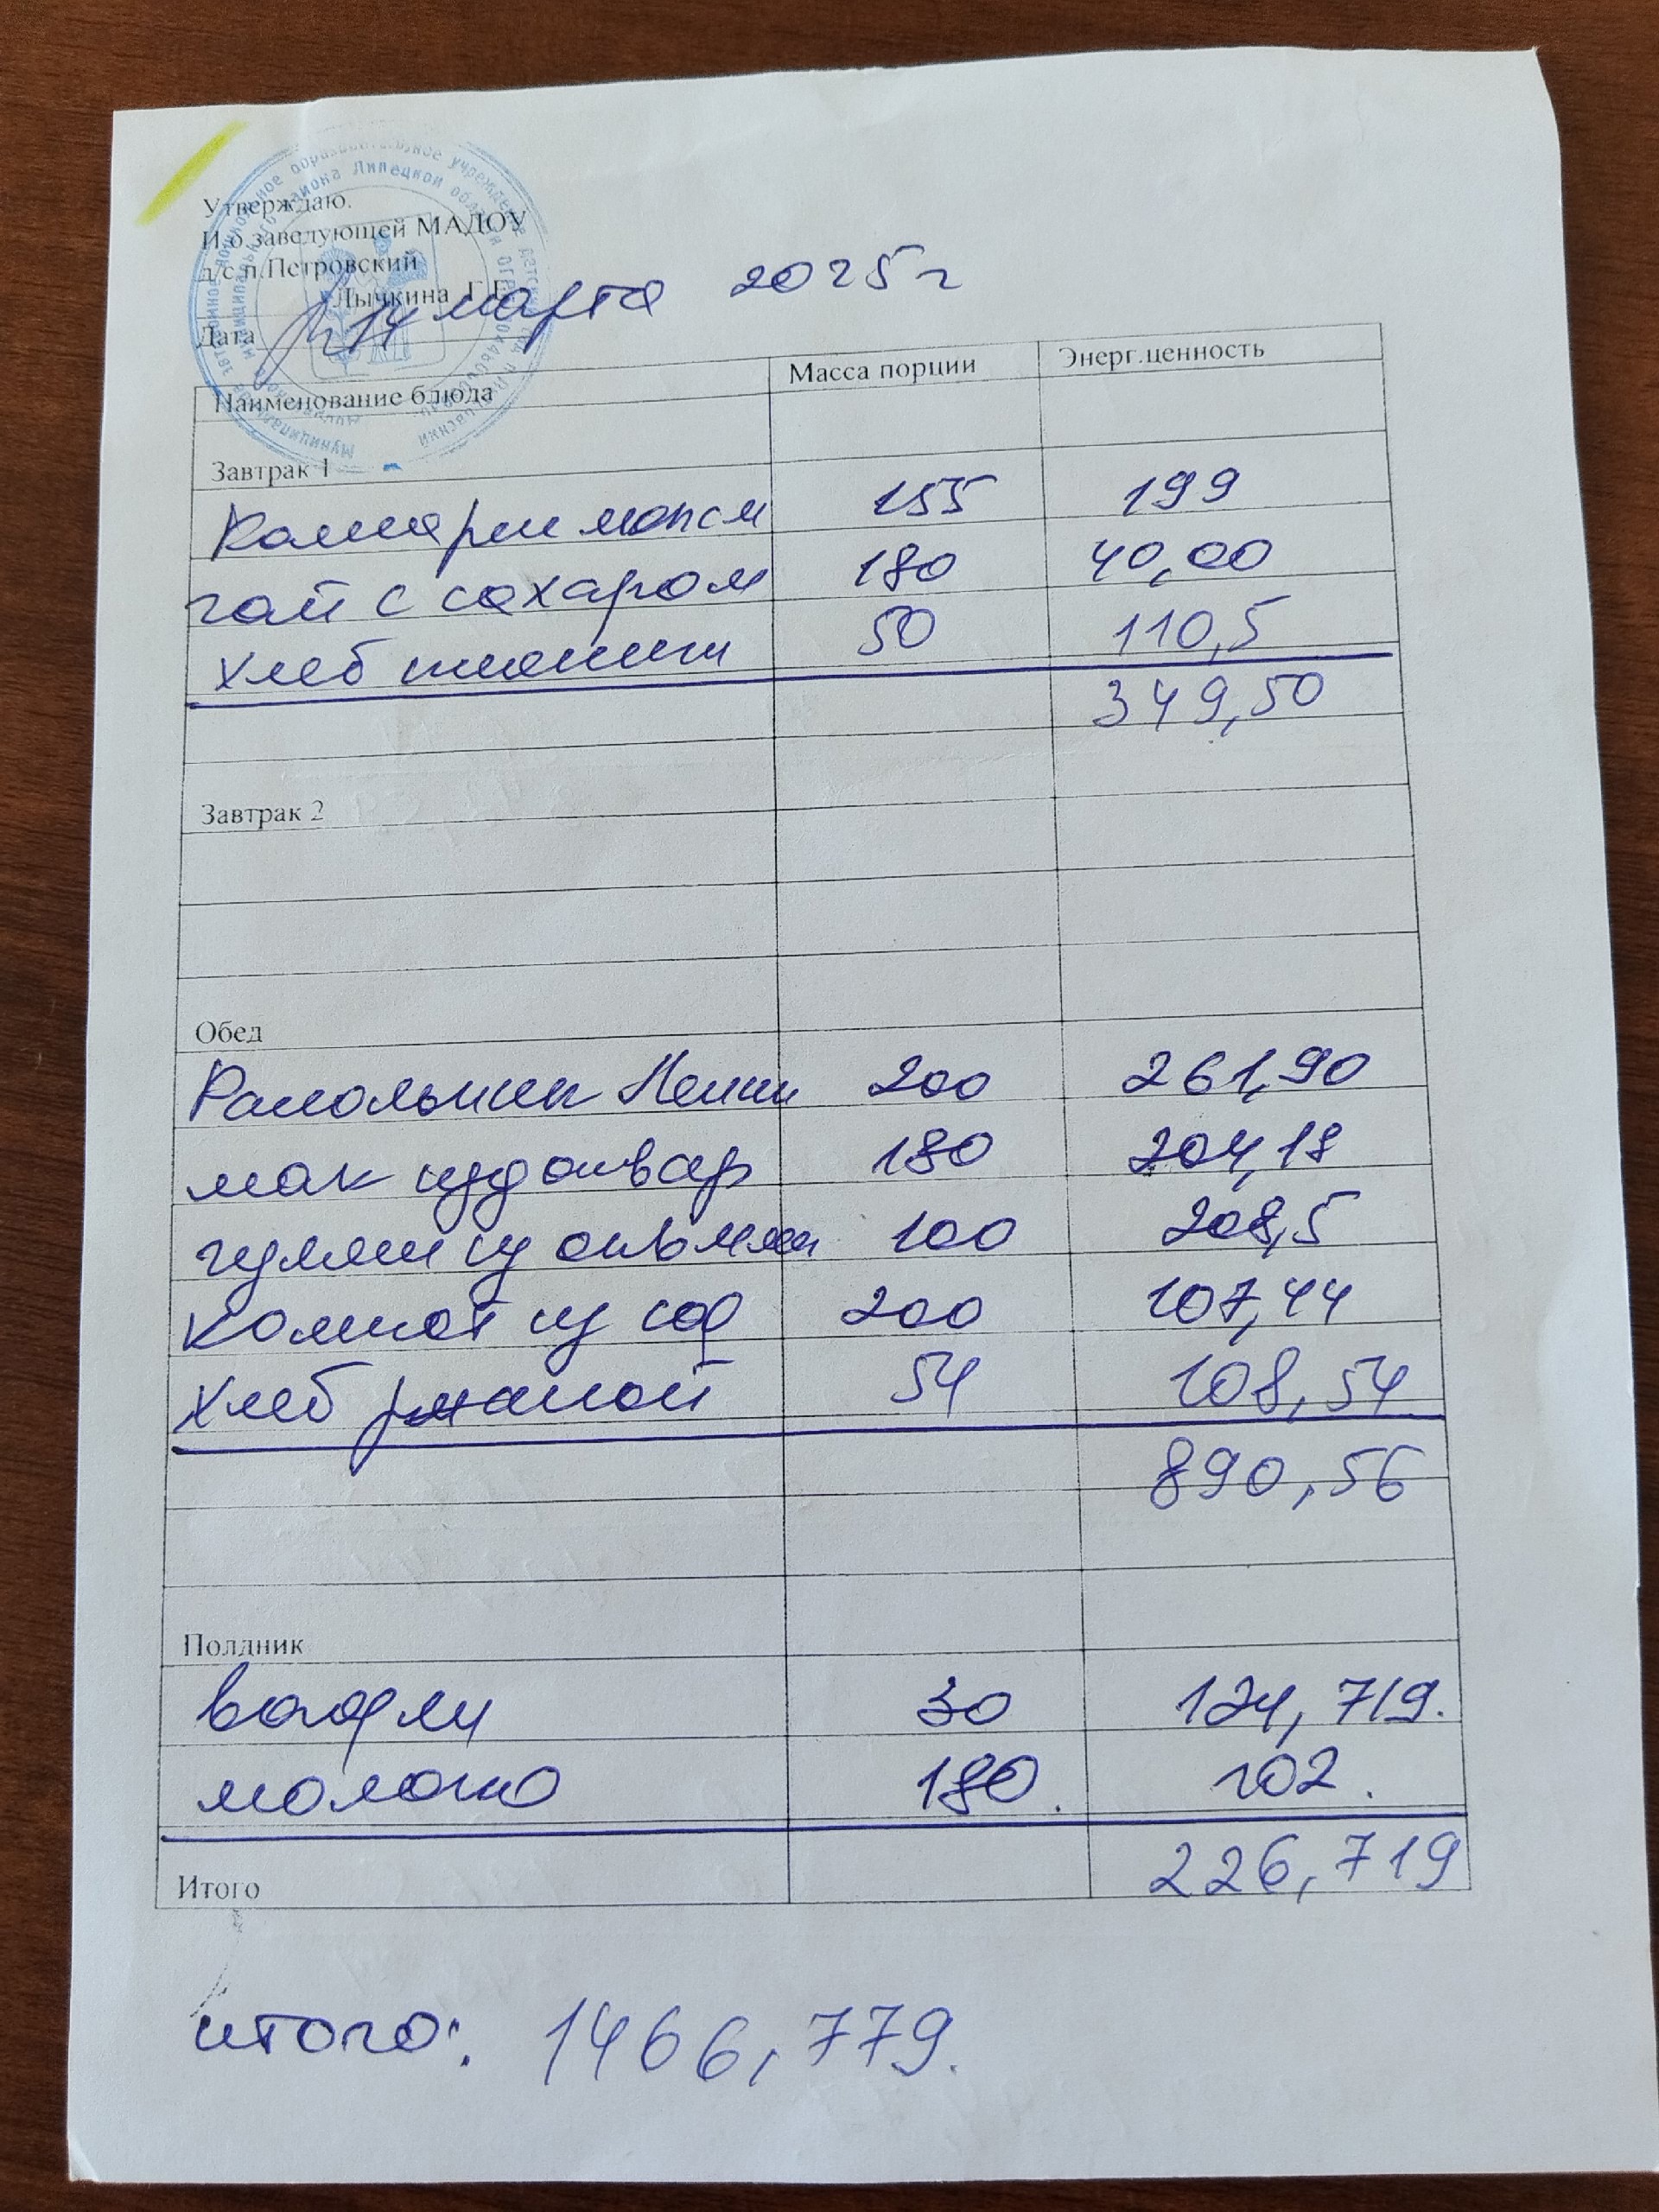 Утверждаю.
И.о.заведующей МАДОУ
д/с п.Петровский
Лычкина Г.Е.
Дата 14 марта 2025г
Наименование блюда Масса порции Энерг.ценность
Завтрак 1
155 199
чай с сахаром 180 40,00
хлеб 50 110,5
349,50
Завтрак 2
Обед
200 261,90
мак изд отвар 180 204,18
гуляш из 100 208,5
компот из сф 200 107,44
хлеб ржаной 54 108,54
890,56
Полдник
вафли 30 124,719.
молоко 180. 102.
Итого 226,719
итого: 1466,779.